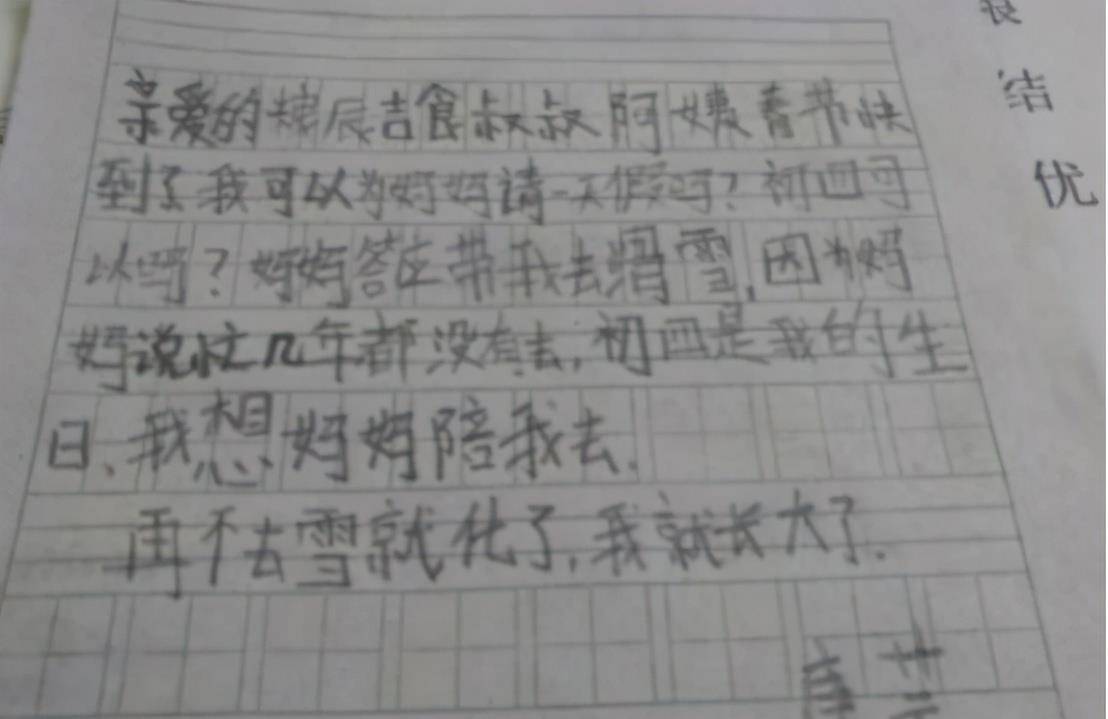 亲爱的辰吉食叔叔阿姨春节快
到了我可以为妈妈请一天假吗？初四可
以吗？妈妈答应带我去滑雪,因为妈
妈说忙几年都没有去,初四是我的生
日、我想妈妈陪我去.
再不去雪就化了,我就长大了.
结
优